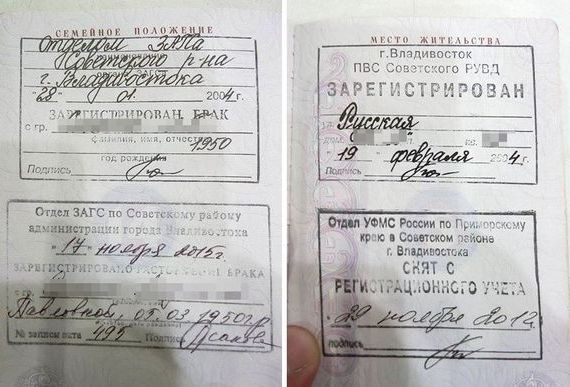 СЕМЕЙНОЕ ПОЛОЖЕНИЕ
Отделом ЗАГСа
Советского р-на
г. Владивостока
"28" 01. 2004 г.
ЗАРЕГИСТРИРОВАН БРАК
с гр.
фамилия, имя, отчество
1950
год рождения
Подпись
Отдел ЗАГС по Советскому району
администрации города Владивостока
"17" ноября 2015 г.
ЗАРЕГИСТРИРОВАНО РАСТОРЖЕНИЕ БРАКА
с гр.
Павловной, 05.03.1950 г.р.
№ записи акта 495 Подпись
МЕСТО ЖИТЕЛЬСТВА
г.Владивосток
ПВС Советского РУВД
ЗАРЕГИСТРИРОВАН
Русская
дом кв.
"19" февраля 2004 г.
Подпись
Отдел УФМС России по Приморскому
краю в Советском районе
г. Владивостока
СНЯТ С
РЕГИСТРАЦИОННОГО УЧЕТА
29 ноября 2012
подпись